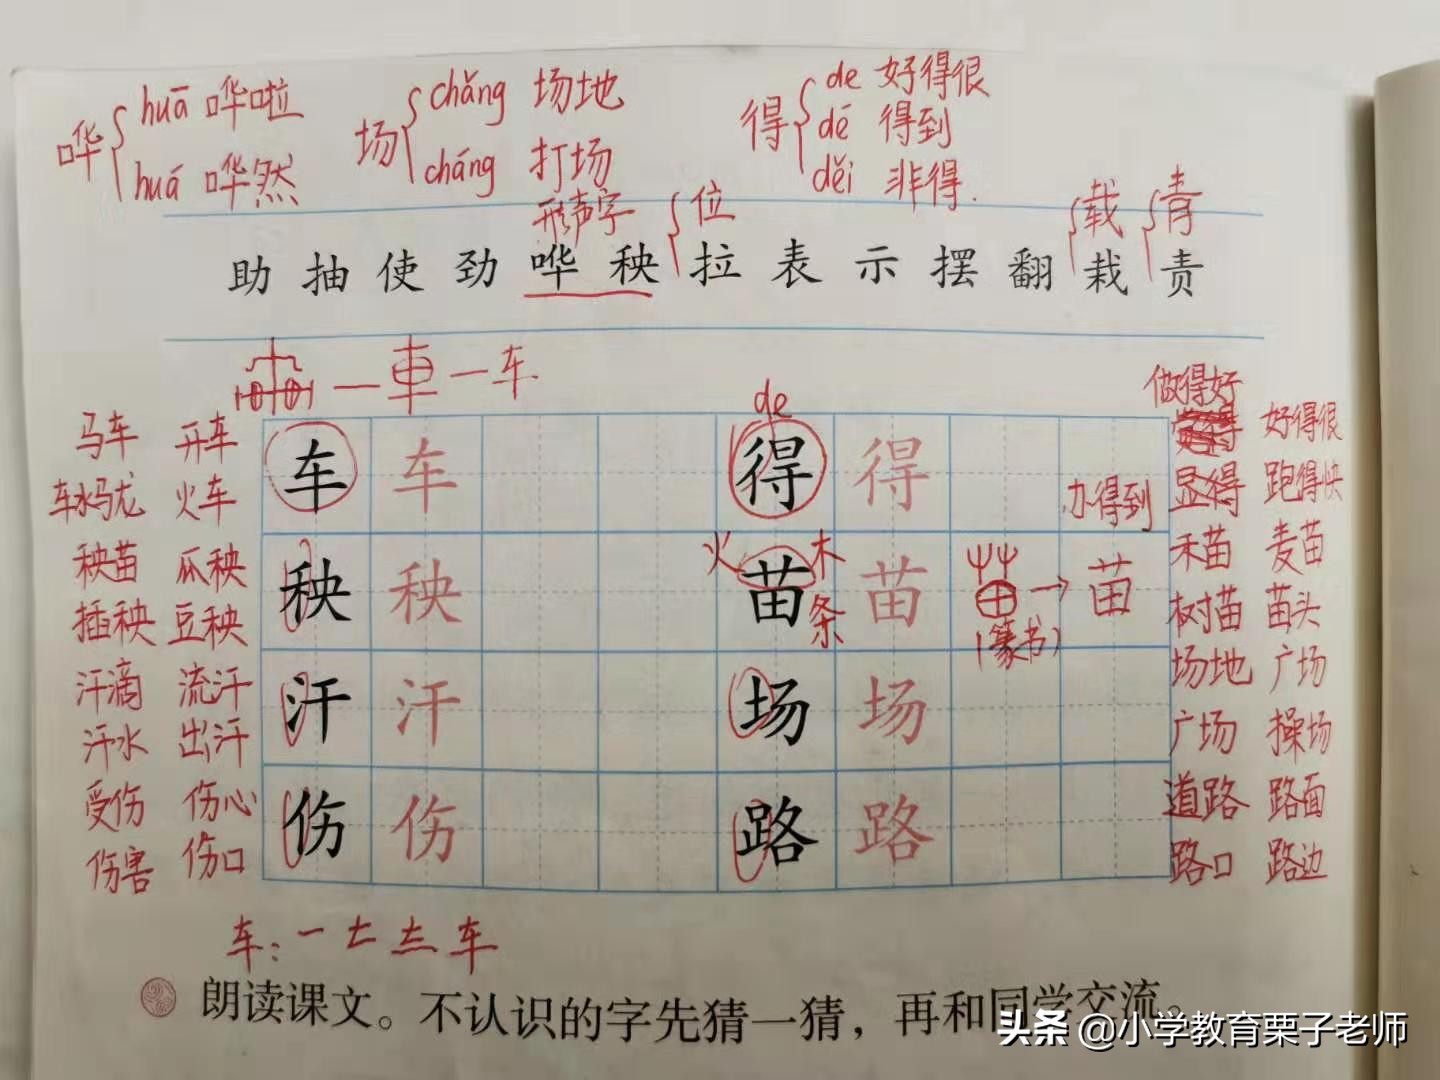 huā 哗啦
哗
huá 哗然
chǎng 场地
场
cháng 打场
de 好得很
得 dé 得到
děi 非得.
形声字 位 载 青
助 抽 使 劲 哗 秧 拉 表 示 摆 翻 栽 责
車 — 车
de
做得好
马车 开车 车 车 得 得 好得很
车水马龙 火车 办得到 显得 跑得快
秧苗 瓜秧 秧 秧 火 木 苗 苗 苗 禾苗 麦苗
插秧 豆秧 条 (篆书) 树苗 苗头
汗滴 流汗 汗 汗 场 场 场地 广场
汗水 出汗 广场 操场
受伤 伤心 伤 伤 路 路 道路 路面
伤害 伤口 路口 路边
车: 车
朗读课文。不认识的字先猜一猜，再和同学交流。
头条 @小学教育栗子老师